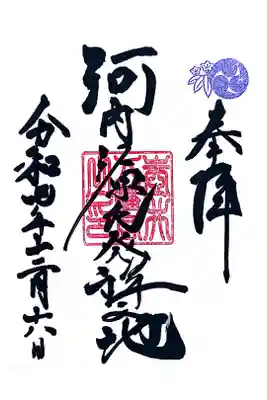 奉拝
河内源氏発祥之地
令和四年十二月十六日